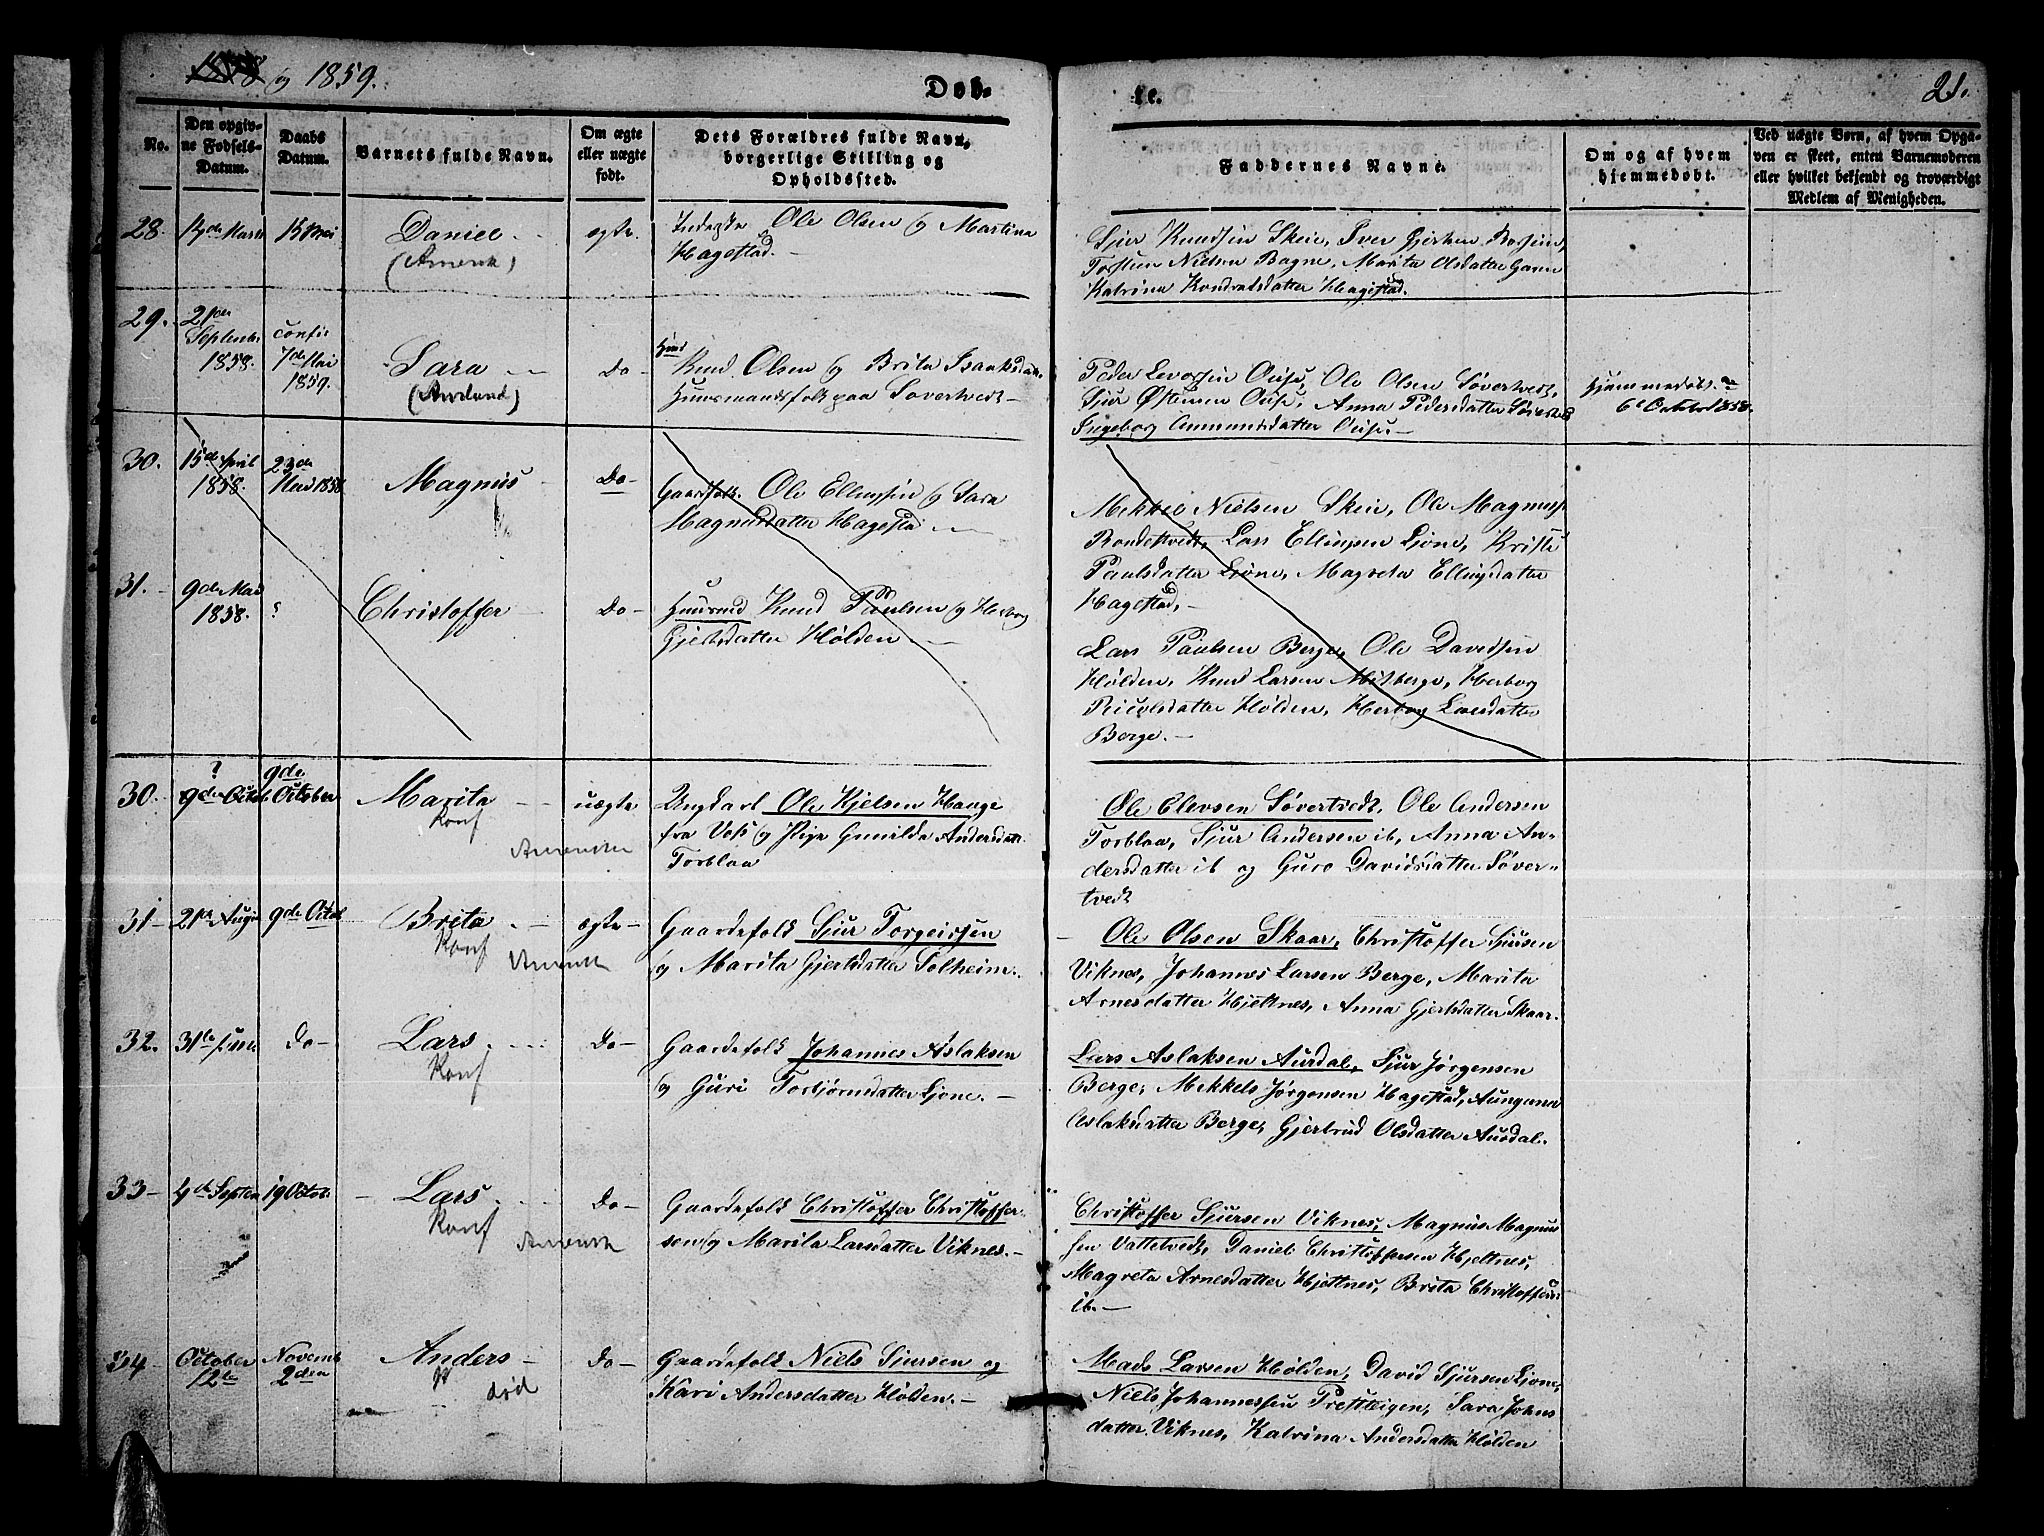 og 1859.
Døb-
te.
21.
No.
Den opgiv-
ne Fødsels-
Datum.
Daabs
Datum.
Barnets fulde Navn.
Om ægte
eller uægte
født.
Dets Forældres fulde Navn,
borgerlige Stilling og
Opholdssted.
Faddernes Navne.
Om og af hvem
hjemmedøbt.
Ved uægte Børn, af hvem Opga-
ven er skeet, enten Barnemoderen
eller hvilket bekjendt og troværdigt
Medlem af Menigheden.
28.
15 Mai
Daniel
(Amerik)
ægte
Ole Olsen og Martina
Hagestad.
Sjur Knudsen Skeie, Iver
Torsten Nielsen Bagne, Marita Olsdatter
Katrina Kondratsdatter Hagestad.
29.
Septembr
1858.
confir
7de Mai
1859.
Sara
do-
Knud Olsen og Brita Isaaksdatt.
Huusmandsfolk paa Sövertvedt-
Peder Ouse, Ole Olsen Sövertvedt,
Sjur Östensen Ouse, Anna Pedersdatter
Ingeborg Amundsdatter Ouse.-
Hjemmedöbt
6te October 1858.
30.
15de April
1858.
23de
Mai 1858
Magnus
Do-
Gaardfolk Ole Ellingsen og Sara
Magnusdatter Hagestad
Mekkel Nielsen Skeie, Ole Magnuss
Rondestvedt, Lars Ellingsen Ljone, Kristi
Paulsdatter Ljöne, Magreta Ellingsdatter
Hagestad,-
31.-
9de Mai
1858.
?
Christoffer
Do-
Huusmd Knud Paulsen og Herborg
Gjertsdatter Hölden.
Lars Paulsen Berge, Ole Davidsen
Hölden, Knud Larsen Mitberge, Herborg
Hölden, Herborg Larsdatter
Berge.-
30.
?
9de Octob
9de
October
Marita
Konf
Amerika
uægte
Ungkarl Ole Kjelsen Hauge
fra Voss og Pige Gunilda Andersdatt.
Torblaa
Ole Elevsen Sövertvedt, Ole Andersen
Torblaa, Sjur Andersen ib, Anna An-
dersdatter ib og Guro Davidsdatter Söver-
tvedt
31-
9de Octob
Brita
Konf
Amerik
ægte
Gaardefolk Sjur Torgeirsen
og Marita Gjertsdatter Solheim.
Ole Olsen Skaar, Christoffer Sjursen
Viknes, Johannes Larsen Berge, Marita
Arnesdatter Hjeltnes, Anna Gjertsdatter Skaar.
32.
do-
Lars
Konf
do-
Gaardefolk Johannes Aslaksen
og Guri Torbjörnsdatter Ljone.-
Lars Aslaksen Aurdal, Sjur Jörgensen
Berge, Mekkels Jörgensen Hagestad,
Aslaksdatter Berge, Gjertrud Olsdatter Aurdal.
33-
4de Septem
19 Octob.
Lars
Konf
Amerik
do-
Gaardefolk Christoffer Christoffer-
sen og Marita Larsdatter Viknes.-
Christoffer Sjursen Viknes, Magnus Magnus-
sen Vattetvedt, Daniel Christoffersen Hjeltnes,
Magreta Arnesdatter Hjeltnes, Brita Christoffersd
ib.-
34-
October
12te
Novemb
2den
Anders
död
do-
Gaardefolk Niels Sjursen og
Kari Andersdatter Hölden.-
Mads Larsen Hölden, David Sjursen Ljone,
Niels Johannessen Prestteigen, Sara Johns
datter Viknes, Katrina Andersdatter Hölden